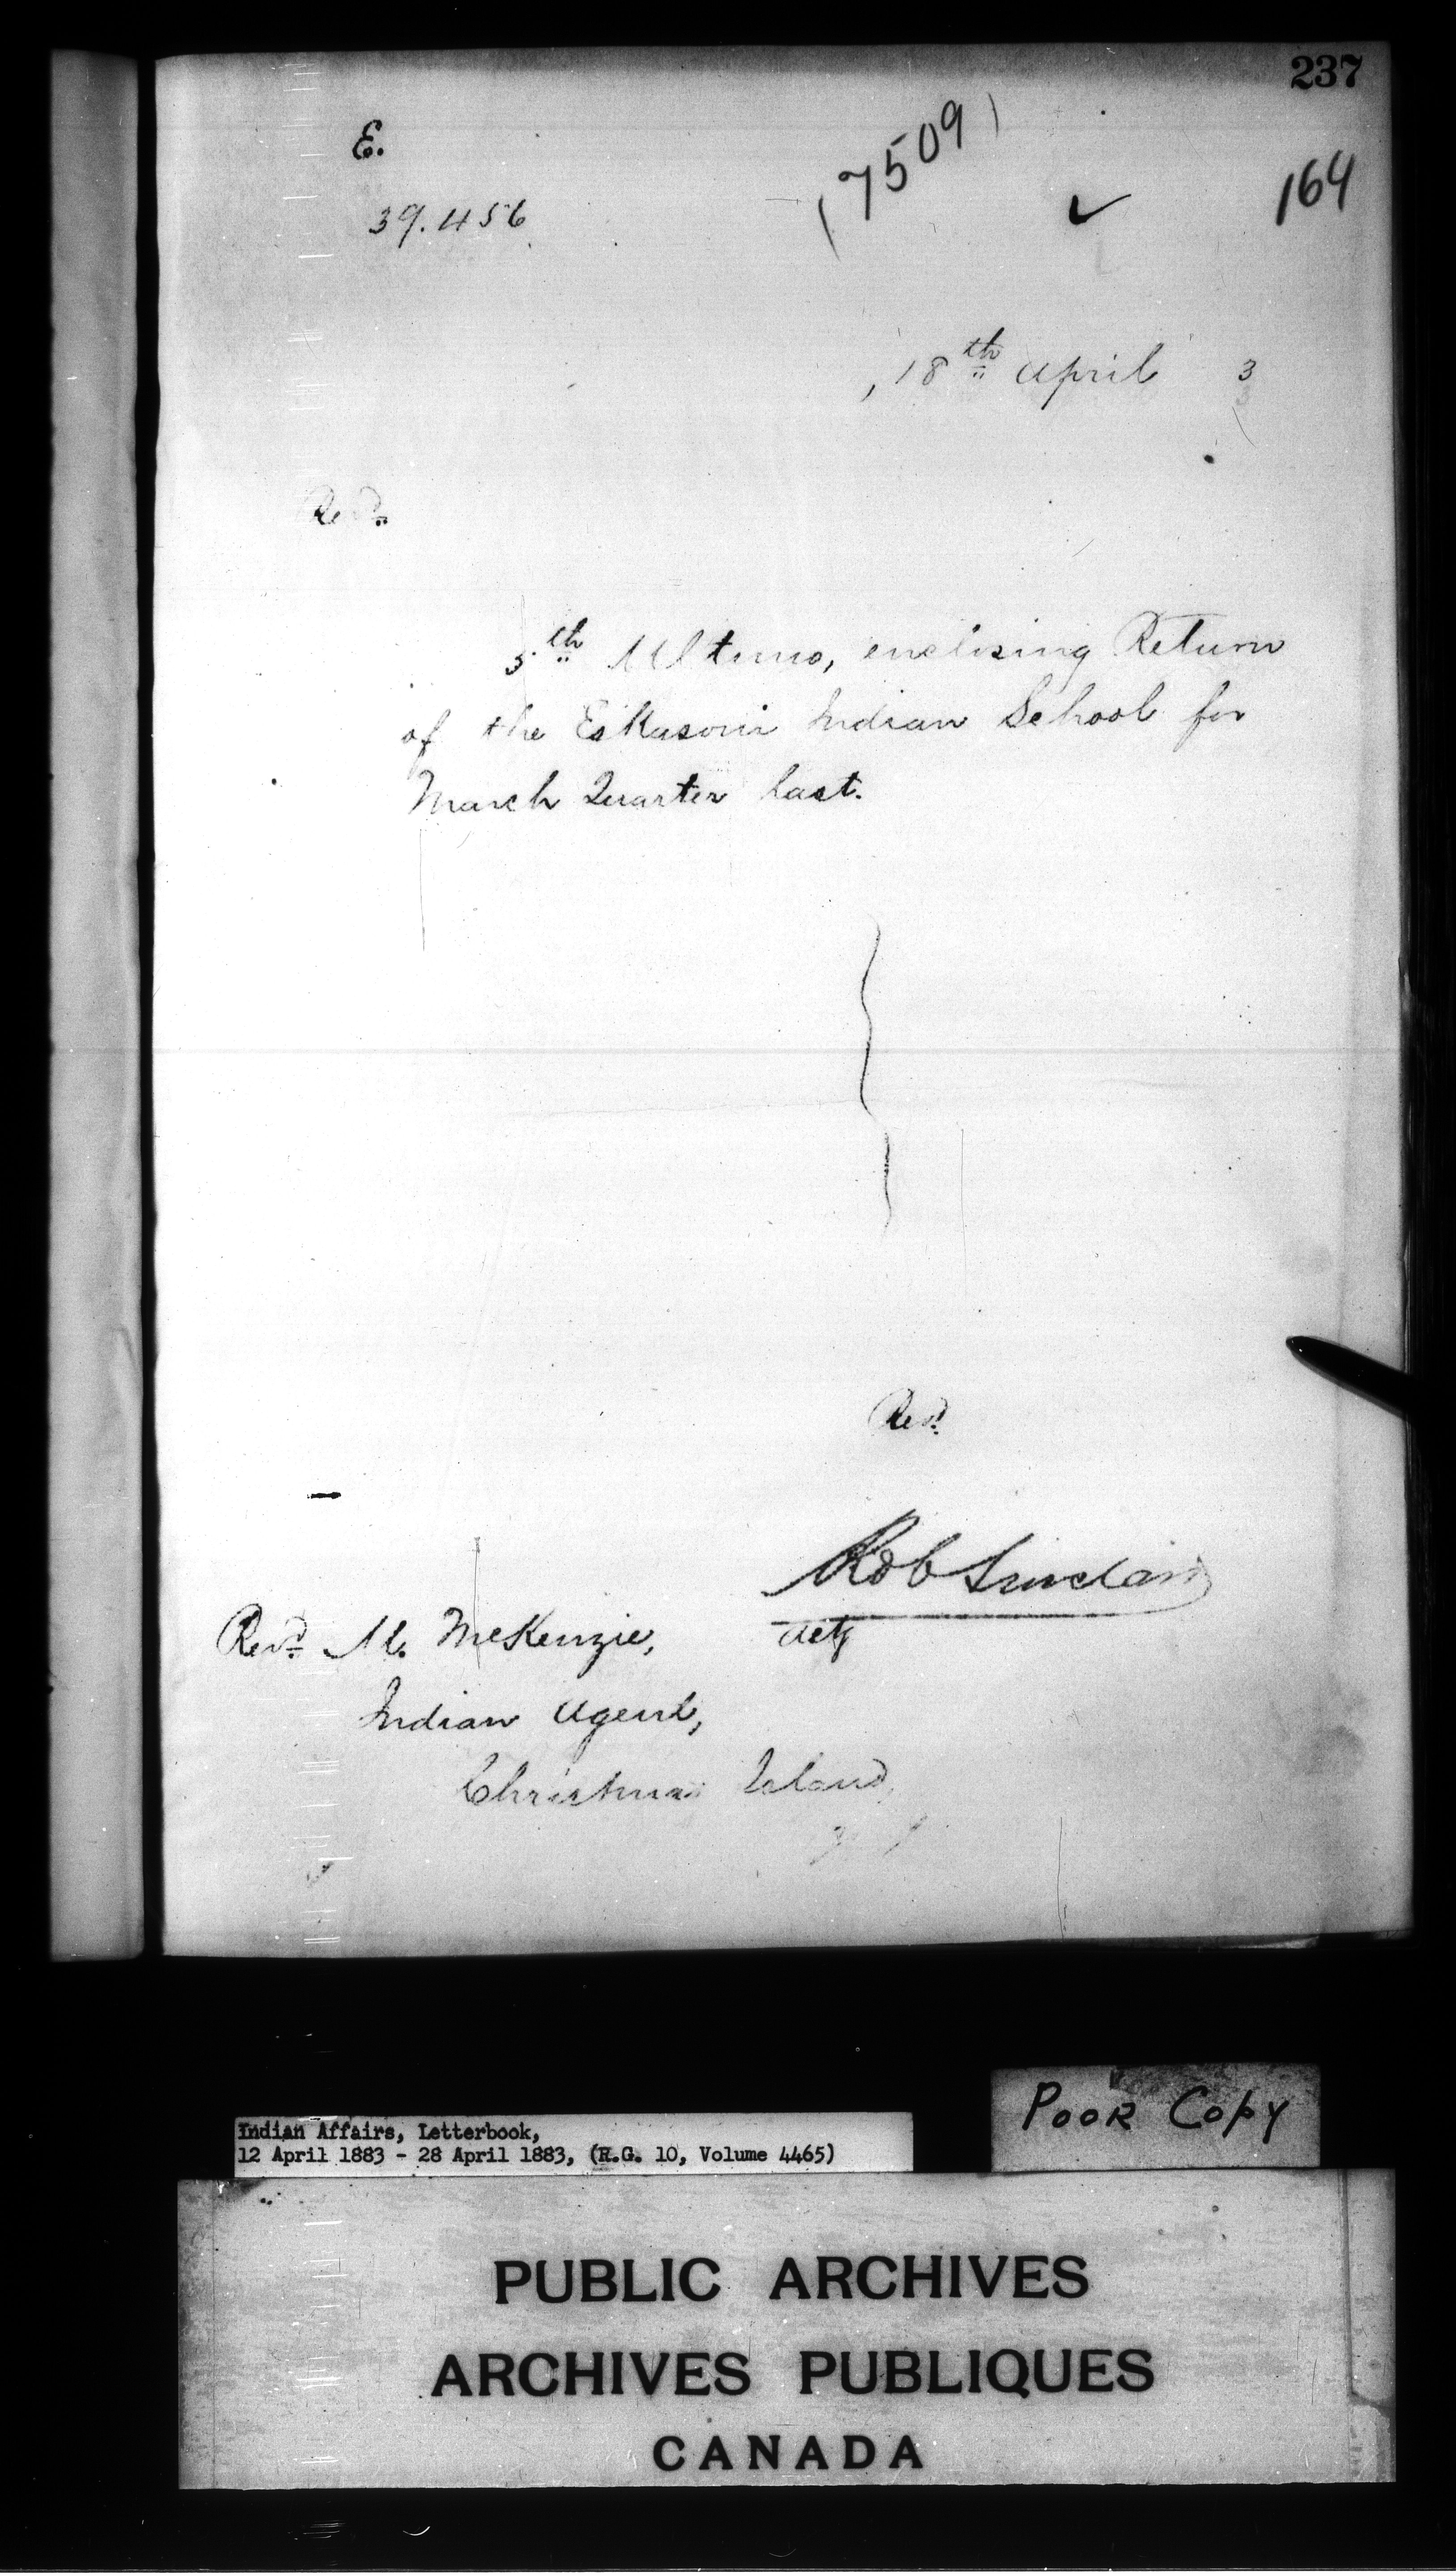 237
E.
(7509)
164
39.456
18th April 3
Revd.
5th Ultimo, enclosing Return
of the Eskasoni Indian School for
March Quarter last.
Revd.
Rob Sinclair
Actg
Revd. M. McKenzie,
Indian Agent,
Christmas Island,
Poor Copy
Indian Affairs, Letterbook,
12 April 1883 - 28 April 1883, (R.G. 10, Volume 4465)
PUBLIC ARCHIVES
ARCHIVES PUBLIQUES
CANADA